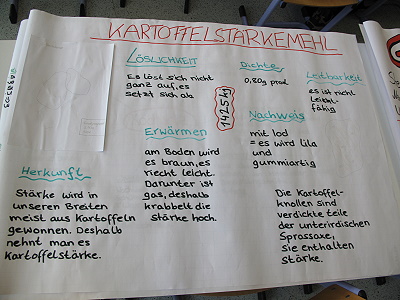 KARTOFFELSTÄRKEMEHL
LÖSLICHKEIT
Es löst sich nicht
ganz auf, es
setzt sich ab
Dichte
0,80g pro1
Leitbarkeit
es ist nicht
Leiht-
fähig
1425kj
Erwärmen
am Boden wird
es braun, es
riecht leicht.
Darunter ist
gas, deshalb
krabbelt die
Stärke hoch.
Nachweis
mit Iod
= es wird lila
und
gummiartig
Herkunft
Stärke wird in
unseren Breiten
meist aus Kartoffeln
gewonnen. Deshalb
nehnt man es
Kartoffelstärke.
Die Kartoffel-
knollen sind
verdickte teile
der unterirdischen
Sprossaxe,
sie enthalten
stärke.